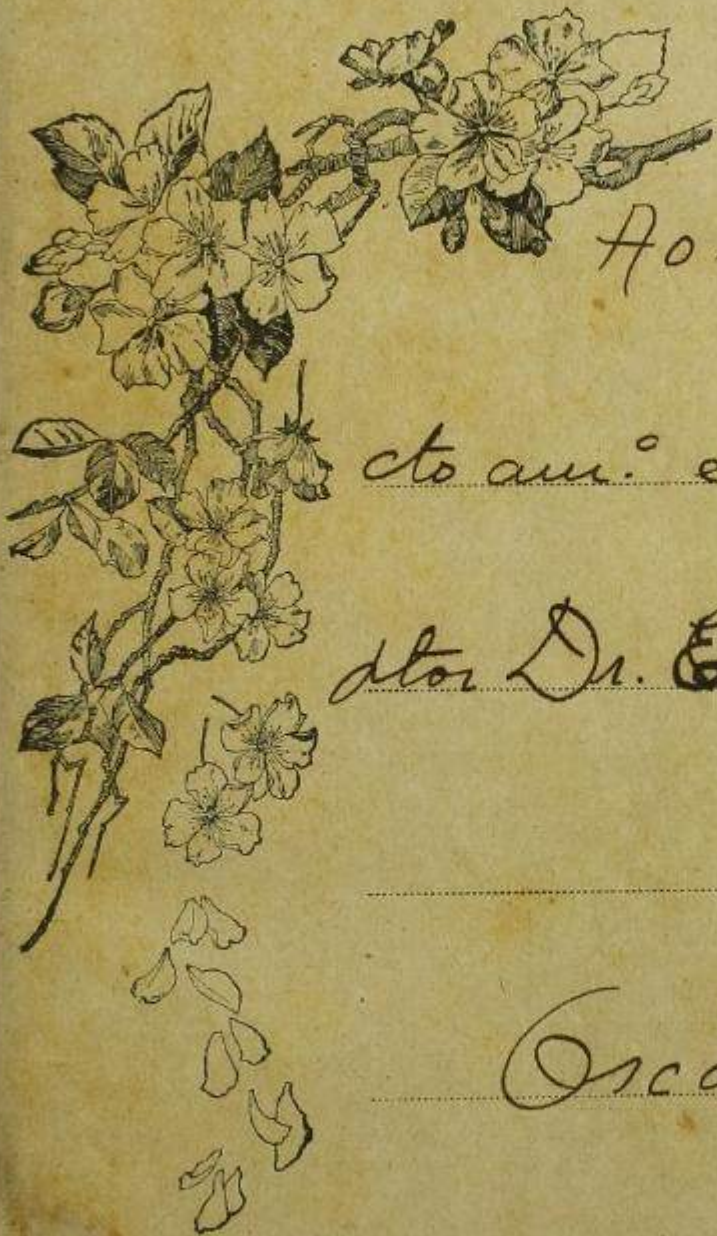 Ao
cto am.º e
dtor Dr. E
Osca